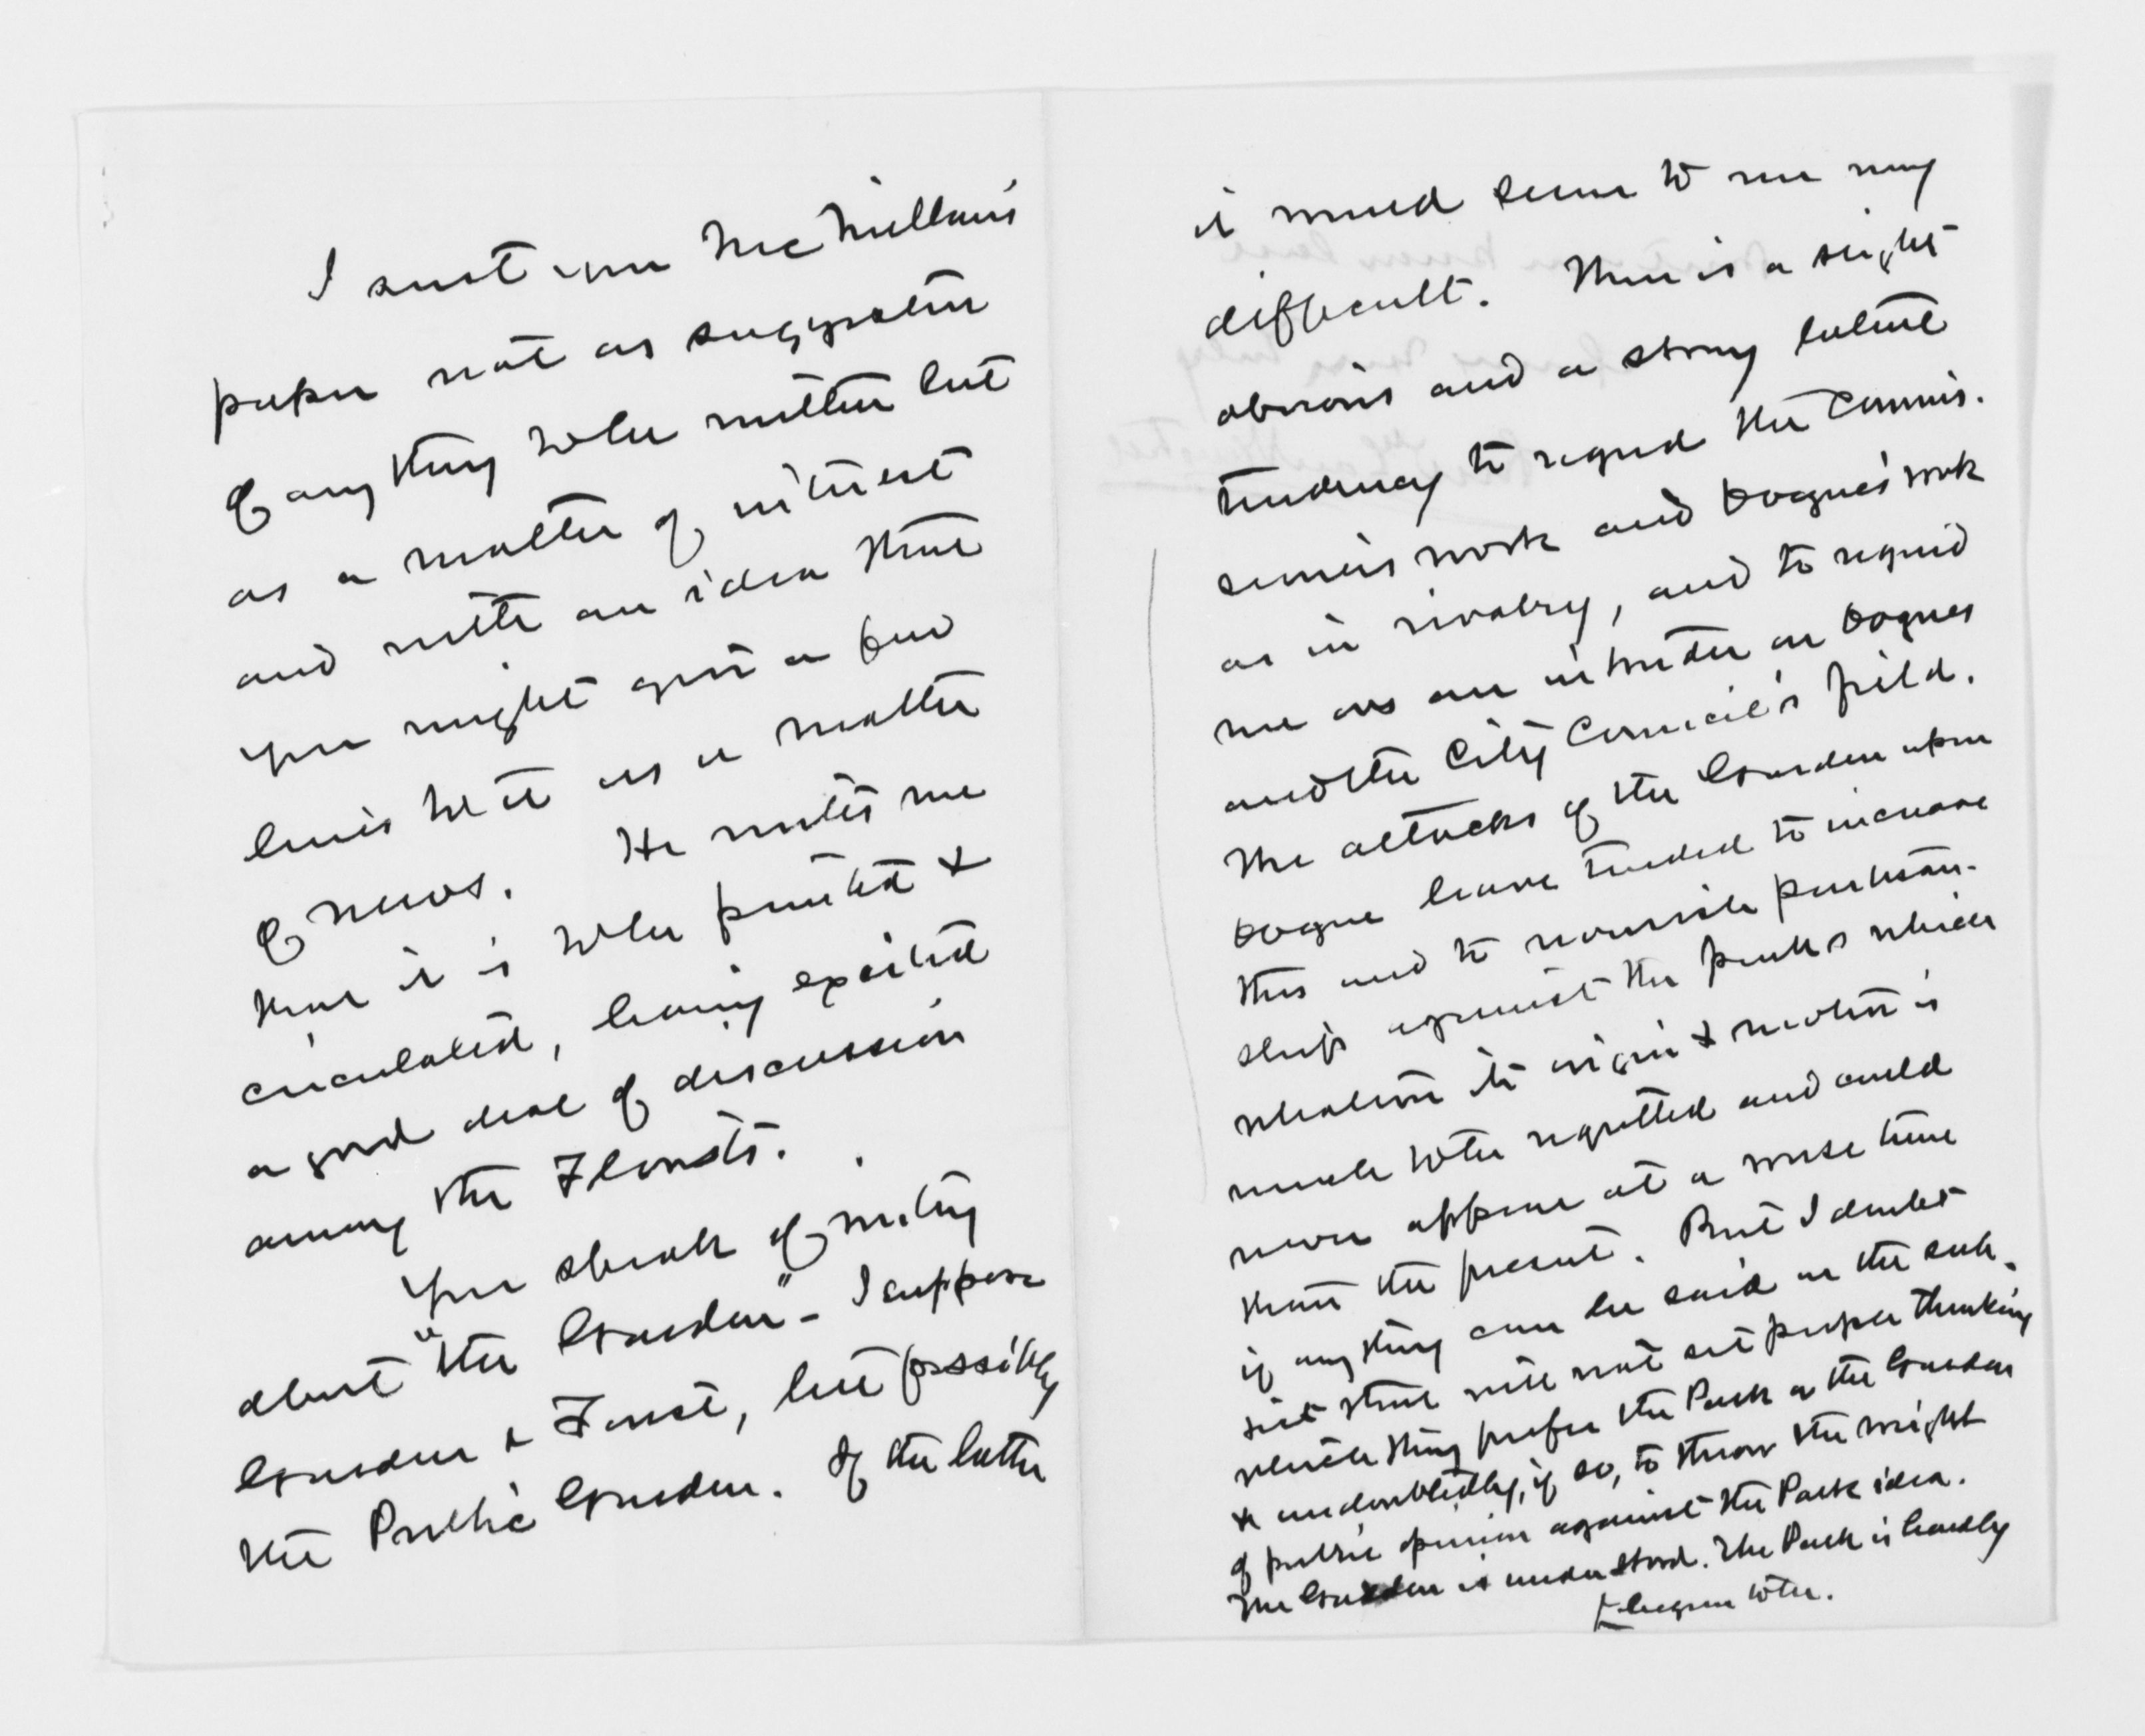 I sent you McMillan's
paper not as suggestive
of any thing to be written but
as a matter of interest
and with an idea that
you might give a few
lines to it as a matter
of news. He writes me
that it is to be printed &
circulated, having excited
a good deal of discussion
among the Florists.
You speak of writing
about "the Garden" - I suppose
Garden & Forest, but possibly
the Public Garden. Of the latter
it would seem to me very
difficult. There is a slight
obvious and a strong latent
tendency to regard the Commis-
sion's work and Dogue's work
as in rivalry, and to regard
me as an intruder on Dogues
and the City Council's field.
The attacks of the Garden upon
Dogue have tended to increase
this and to nourish partisan-
ship against the parks which
whatever its origin & motive is
much to be regretted and could
never appear at a worse time
than the present. But I doubt
if any thing can be said on the sub-
ject that will not set people thinking
which they prefer the Park or the Garden
& undoubtedly, if so, to throw the weight
of public opinion against the Park idea.
The Garden is understood. The Park is hardly
begun to be.